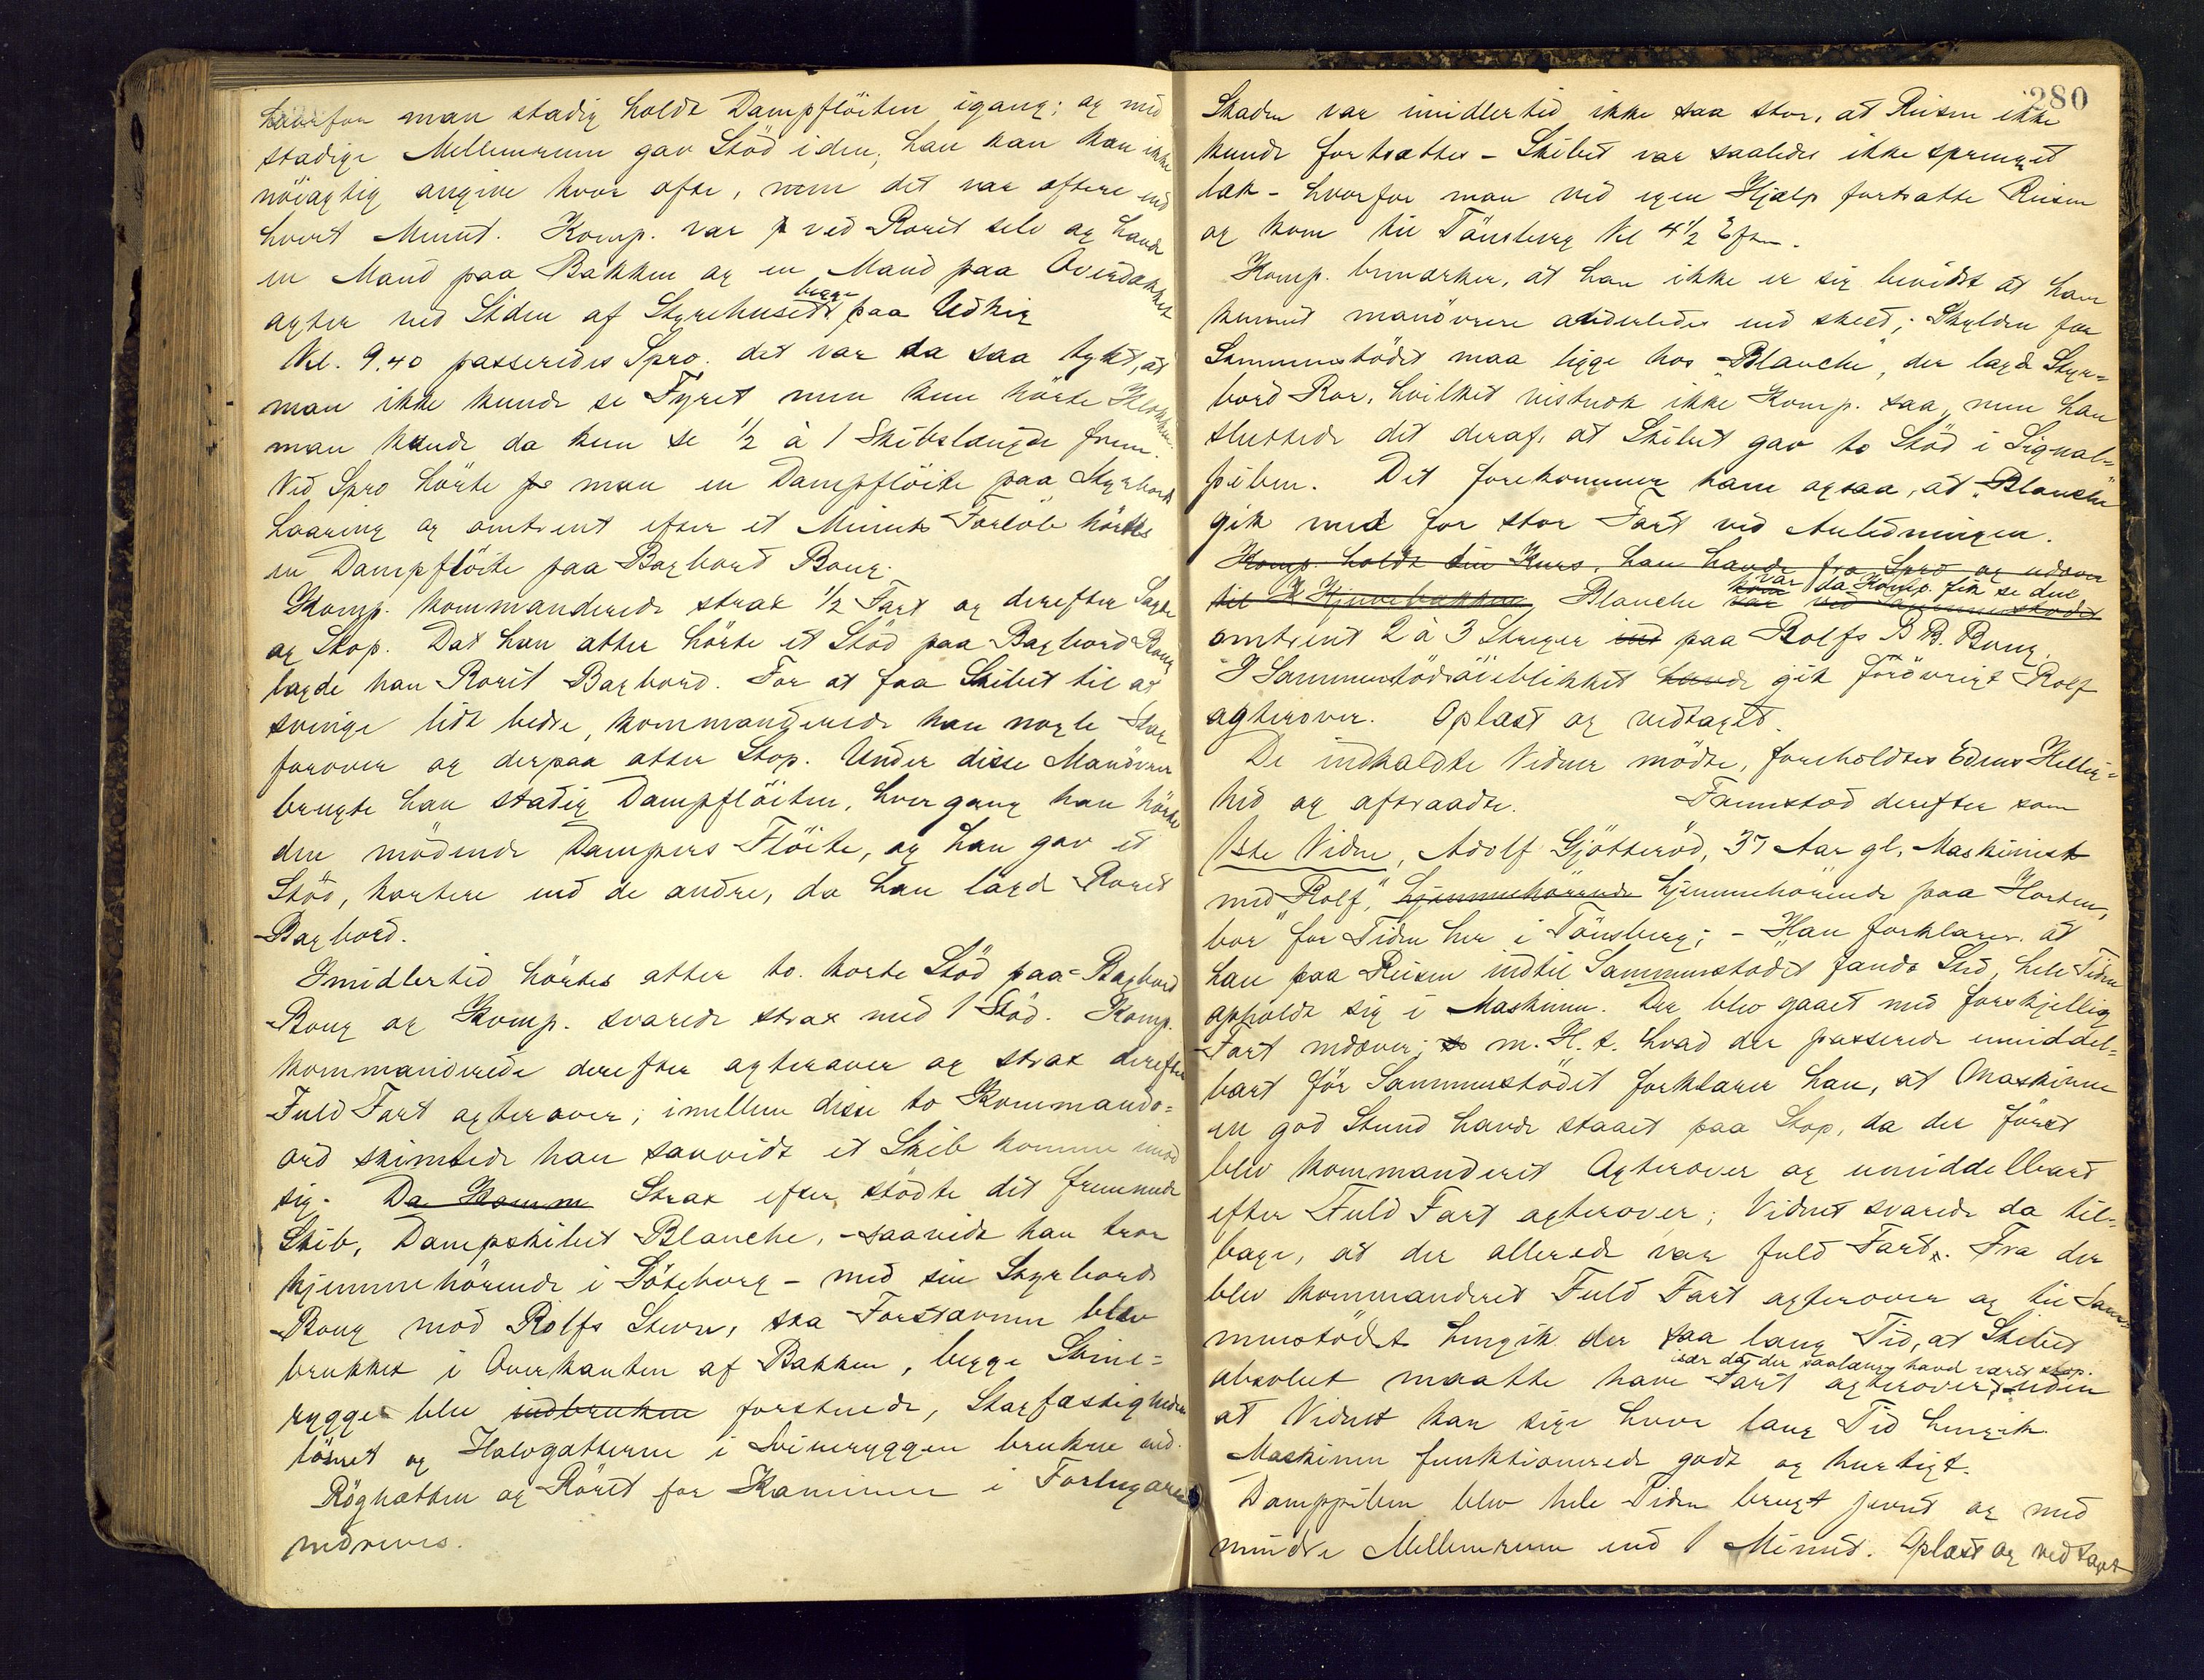 hvorfor man stadig holdt Dampflöiten igang; og med
stadige Mellemrum gav Stöd i den; han kan kan ikke
nöiagtig angive hvor ofte, men det var oftere end
hvert Minut. Komp. var ved Roret selv og havde
en Mand paa Bakken og en Mand paa Overdækket
agter ved Siden af Styrehuset begge paa Udkig
Kl. 9.40 passeredes Spro. det var da saa tykt, at
man ikke kunde se Fyret men kun hörte Klokken
man kunde da kun se ½ à 1 Skibslængde frem.
Ved Spro hörte man en Dampflöite paa Styrbords
Laaring og omtrent efter et Minuts Forlöb hörtes
en Dampflöite paa Bagbord Boug.
Komp. kommanderede strax ½ Fart og derefter Sagte
og Stop. Dat han atter hörte et Stöd paa Bagbord Boug
lagde han Roret Bagbord. For at faa Skibet til at
svinge lidt bedre, kommanderede han nogle Slag
forover og derpaa atter Stop. Under disse Manövrer
brugte han stadig Dampflöiten, hver gang han hörte
den mödende Dampers Flöite, og han gav et
Stöd, kortere end de andre, da han lagde Roret
Bagbord.
Imidlertid hörtes atter to korte Stöd paa Bagbord
Boug og Komp. svarede strax med 1 Stöd. Komp.
kommanderede derefter agterover og strax derefter
Fuld Fart agterover; imellem disse to Kommando-
ord skimtede han saavidt et Skib komme imod
sig. Da Komm Strax efter stödte det fremmede
Skib, Dampskibet Blanche, - saavidt han tror
hjemmehörende i Göteborg - med sin Styrbords
Boug mod Rolfs Stevn, saa Forstavnen blev
brukket i Overkanten af Bakken, begge Svine-
rygger blev indbrukne forskuede, Skarfæstigheden
lösnet og Halvgatterne i Svineryggen brukne ned.
Röghætten og Röret for Kaminen i Forlugaren
nedreves.
280
Skaden var imidlertid ikke saa stor, at Reisen ikke
kunde fortsættes - Skibet var saaledes ikke sprunget
læk - hvorfor man ved egen Hjælp fortsatte Reisen
og kom til Tönsberg Kl 4½ Eftm.
Komp. bemærker, at han ikke er sig bevidst at have
kunnet manövrere anderledes end skeet; Skylden for
Sammenstödet maa ligge hos "Blanche", der lagde Styr-
bord Ror, hvilket vistnok ikke Komp. saa, men han
sluttede det deraf, at Skibet gav to Stöd i Signal-
piben. Det forekommer ham ogsaa, at "Blanche"
gik med for stor Fart ved Anledningen.
Komp. holdt sin Kurs, han havde fra Spro og udover
til Hjuvebakken, Blanche var da Komp. fik se den
omtrent 2 à 3 Streger ind paa Rolfs B B. Boug.
I Sammenstödsöieblikket havde gik forövrigt Rolf
agterover. Oplæst og vedtaget.
De indkaldte Vidner mödte, foreholdtes Edens Hellig-
hed og aftraadte. Fremstod derefter som
1ste Vidne, Adolf Gjötteröd, 37 Aar gl, Maskinist
med "Rolf," hjemmehörende hjemmehörende paa Horten,
bor for Tiden her i Tönsberg; - Han forklarer at
han paa Reisen indtil Sammenstödet fandt Sted, hele Tiden
opholdt sig i Maskinen. Der blev gaaet med forskjellig
Fart udover; m. H. t. hvad der passerede umiddel-
bart för Sammenstödet forklarer han, at Maskinen
en god Stund havde staaet paa Stop, da der först
blev kommanderet Agterover og umiddelbart
efter Fuld Fart agterover; Vidnet svarede da til-
bage, at der allerede var fuld Fart. Fra der
blev kommanderet Fuld Fart agterover og til Sam-
menstödet hengik der saa lang Tid, at Skibet
absolut maatte have Fart agterover, især da der saalænge havd været stop. uden
at Vidnet kan sige hvor lang Tid hengik.
Maskinen funktionerede godt og hurtigt.
Damppiben blev hele Tiden brugt jevnt og med
mindre Mellemrum end 1 Minut. Oplæst og vedtaget